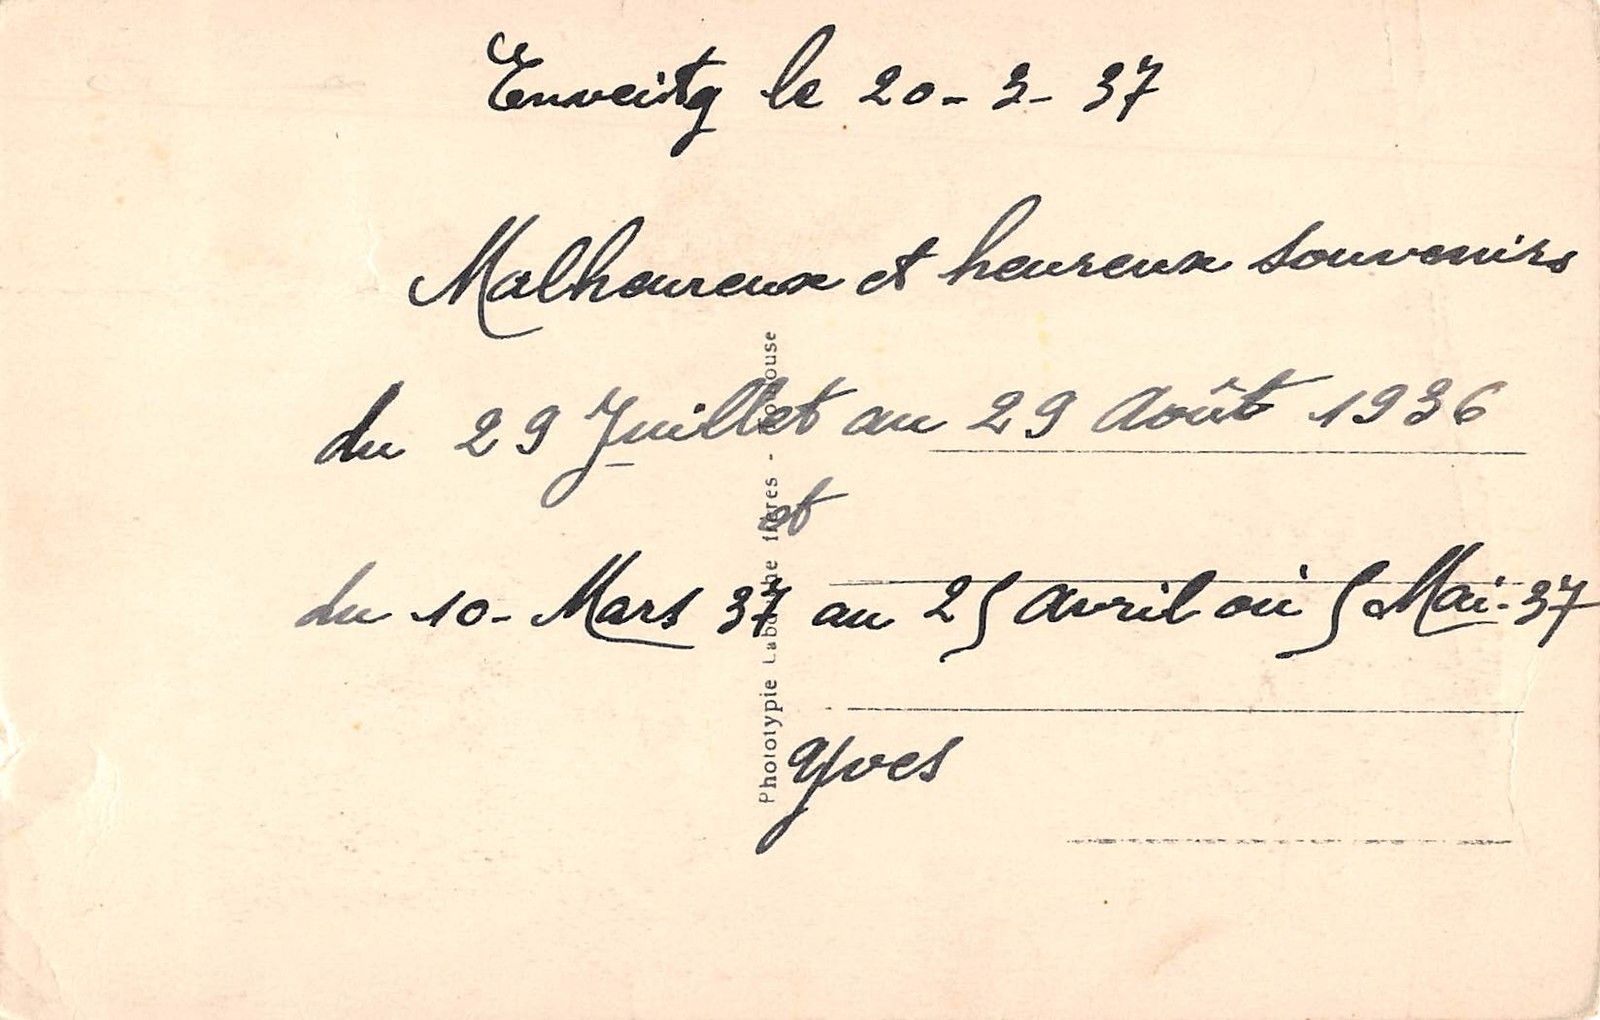 Enveitg le 20-3-37
Malheureux et heureux souvenirs
du 29 Juillet au 29 Août 1936
et
du 10-Mars 37 au 25 avril ou 5 Mai-37
Yves
Phototypie Labouche frères - Toulouse